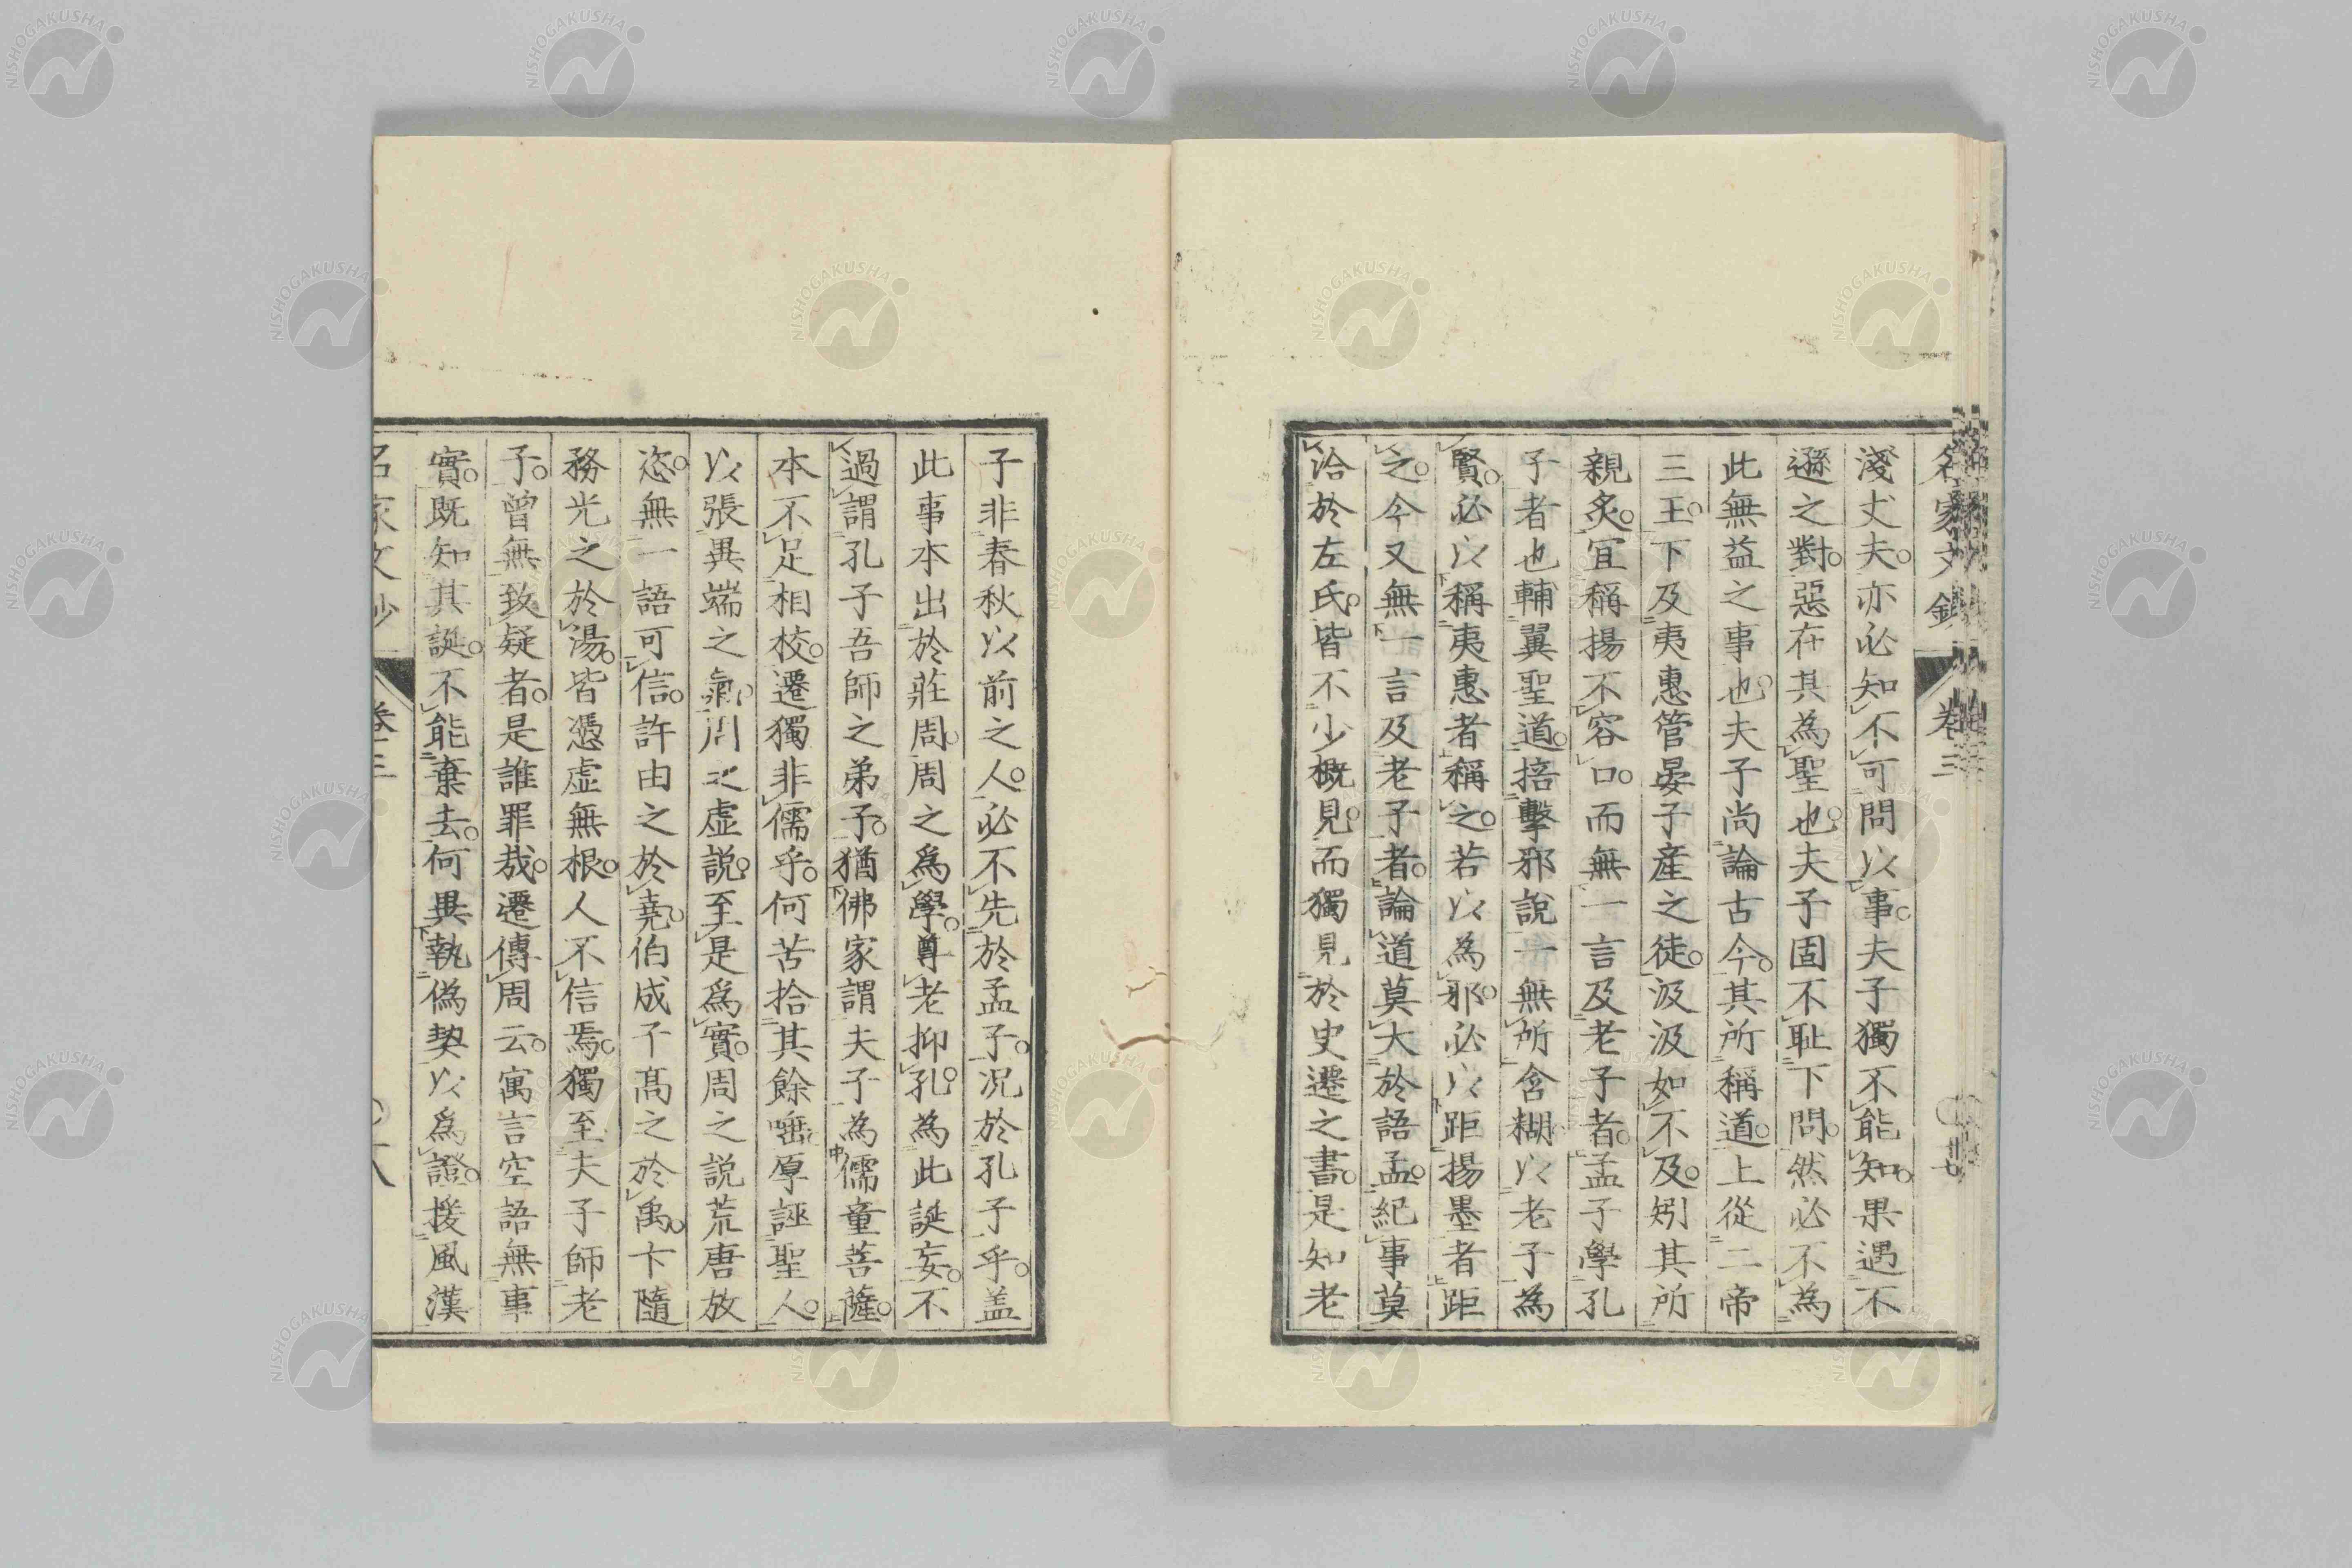 名家文鈔 卷三 廿七
淺丈夫。亦必知不可問以事。夫子獨不能知。果遇不
遜之對。惡在其為聖也。夫子固不恥下問。然必不為
此無益之事也。夫子尚論古今。其所稱道。上從二帝
三王。下及夷惠管晏子產之徒。汲汲如不及。矧其所
親炙。宜稱揚不容口。而無一言及老子者。孟子學孔
子者也輔翼聖道。掊擊邪說一無所含糊以老子為
賢。必以稱夷惠者稱之。若以為邪。必以距揚墨者距
之。今又無一言及老子者。論道莫大於語孟。紀事莫
洽於左氏。皆不少概見。而獨見於史遷之書。是知老
子非春秋以前之人。必不先於孟子。況於孔子乎。盖
此事本出於莊周。周之爲學。尊老抑孔。為此誕妄。不
過謂孔子吾師之弟子。猶佛家謂夫子為儒童菩薩。
本不足相校。遷獨非儒乎。何苦拾其餘唾。厚誣聖人。
以張異端之氣。周之虛說。至是爲實。周之說荒唐放
恣。無一語可信。許由之於堯。伯成子高之於禹。卞隨
務光之於湯。皆憑虛無根。人不信焉。獨至夫子師老
子。曾無致疑者。是誰罪哉。遷傳周云。寓言空語無事
實。既知其誕。不能棄去。何異執僞契以爲證。援風漢
名家文鈔 卷三